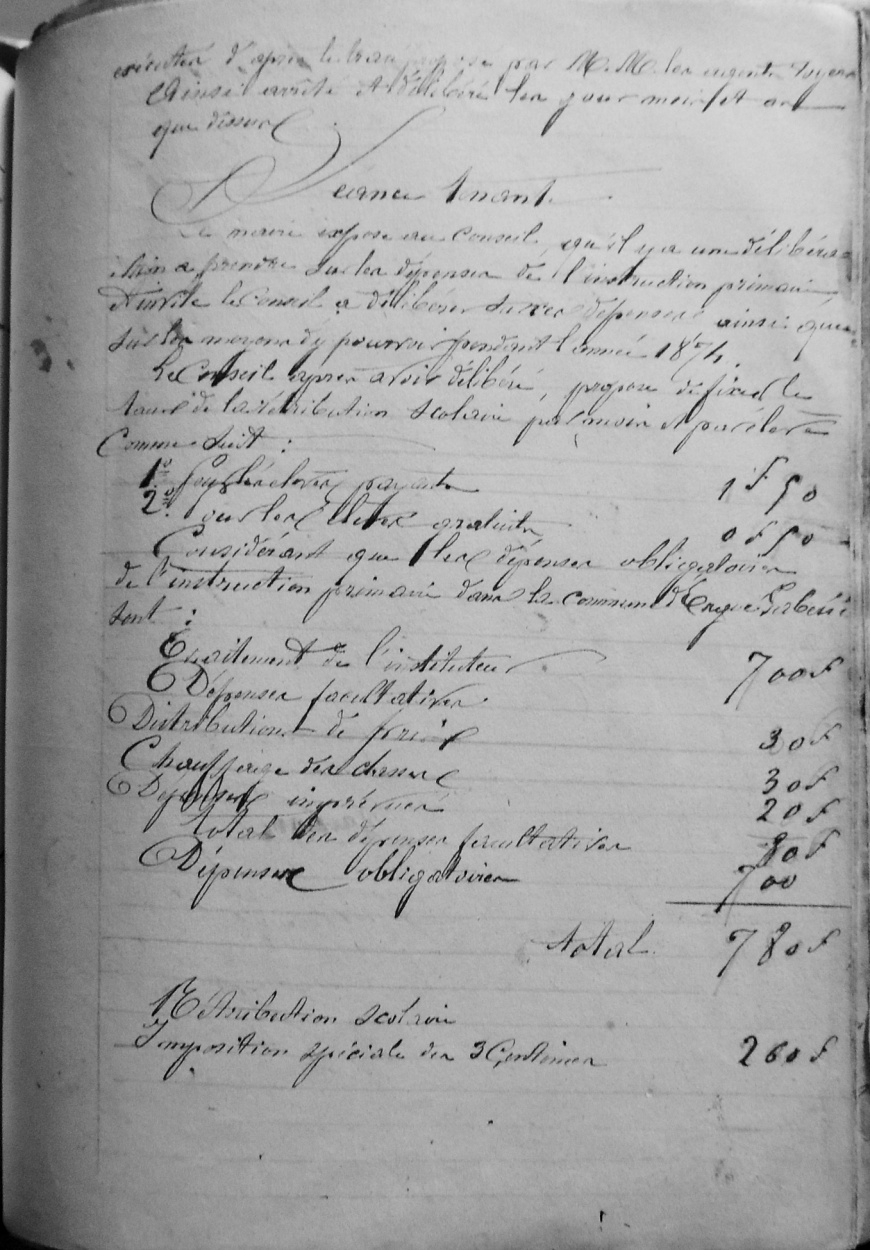 exécuter d'après le tracé proposé par M.M. les agents Voyers
Ainsi arrêté et délibéré les jour mois et an
que dessus
Séance tenante
Le maire expose au Conseil, qu'il y a une délibéra-
tion a prendre sur les dépenses de l'instruction primaire
et invite le Conseil a délibérer sur ces dépenses ainsi que
sur les moyens dy pourvoir pendant l'année 1871
Le Conseil après avoir délibéré, propose de fixer le
taux de la rétribution scolaire par mois et par élève
Comme suit :
1º Pour les élèves payants 1 F 50
2º pour les Elèves gratuits 0 F 50
Considérant que les dépenses obligatoires
de l'instruction primaire dans la commune
sont :
Traitement de l'instituteur 700 F
Dépenses facultatives
Distribution de prix 30 F
Chauffage des classes 30 F
Dépenses imprévues 20 F
total des dépenses facultatives 80 F
Dépenses obligatoires 700
total 780 F
Rétribution scolaire
Imposition spéciale des 3 Centimes 260 F